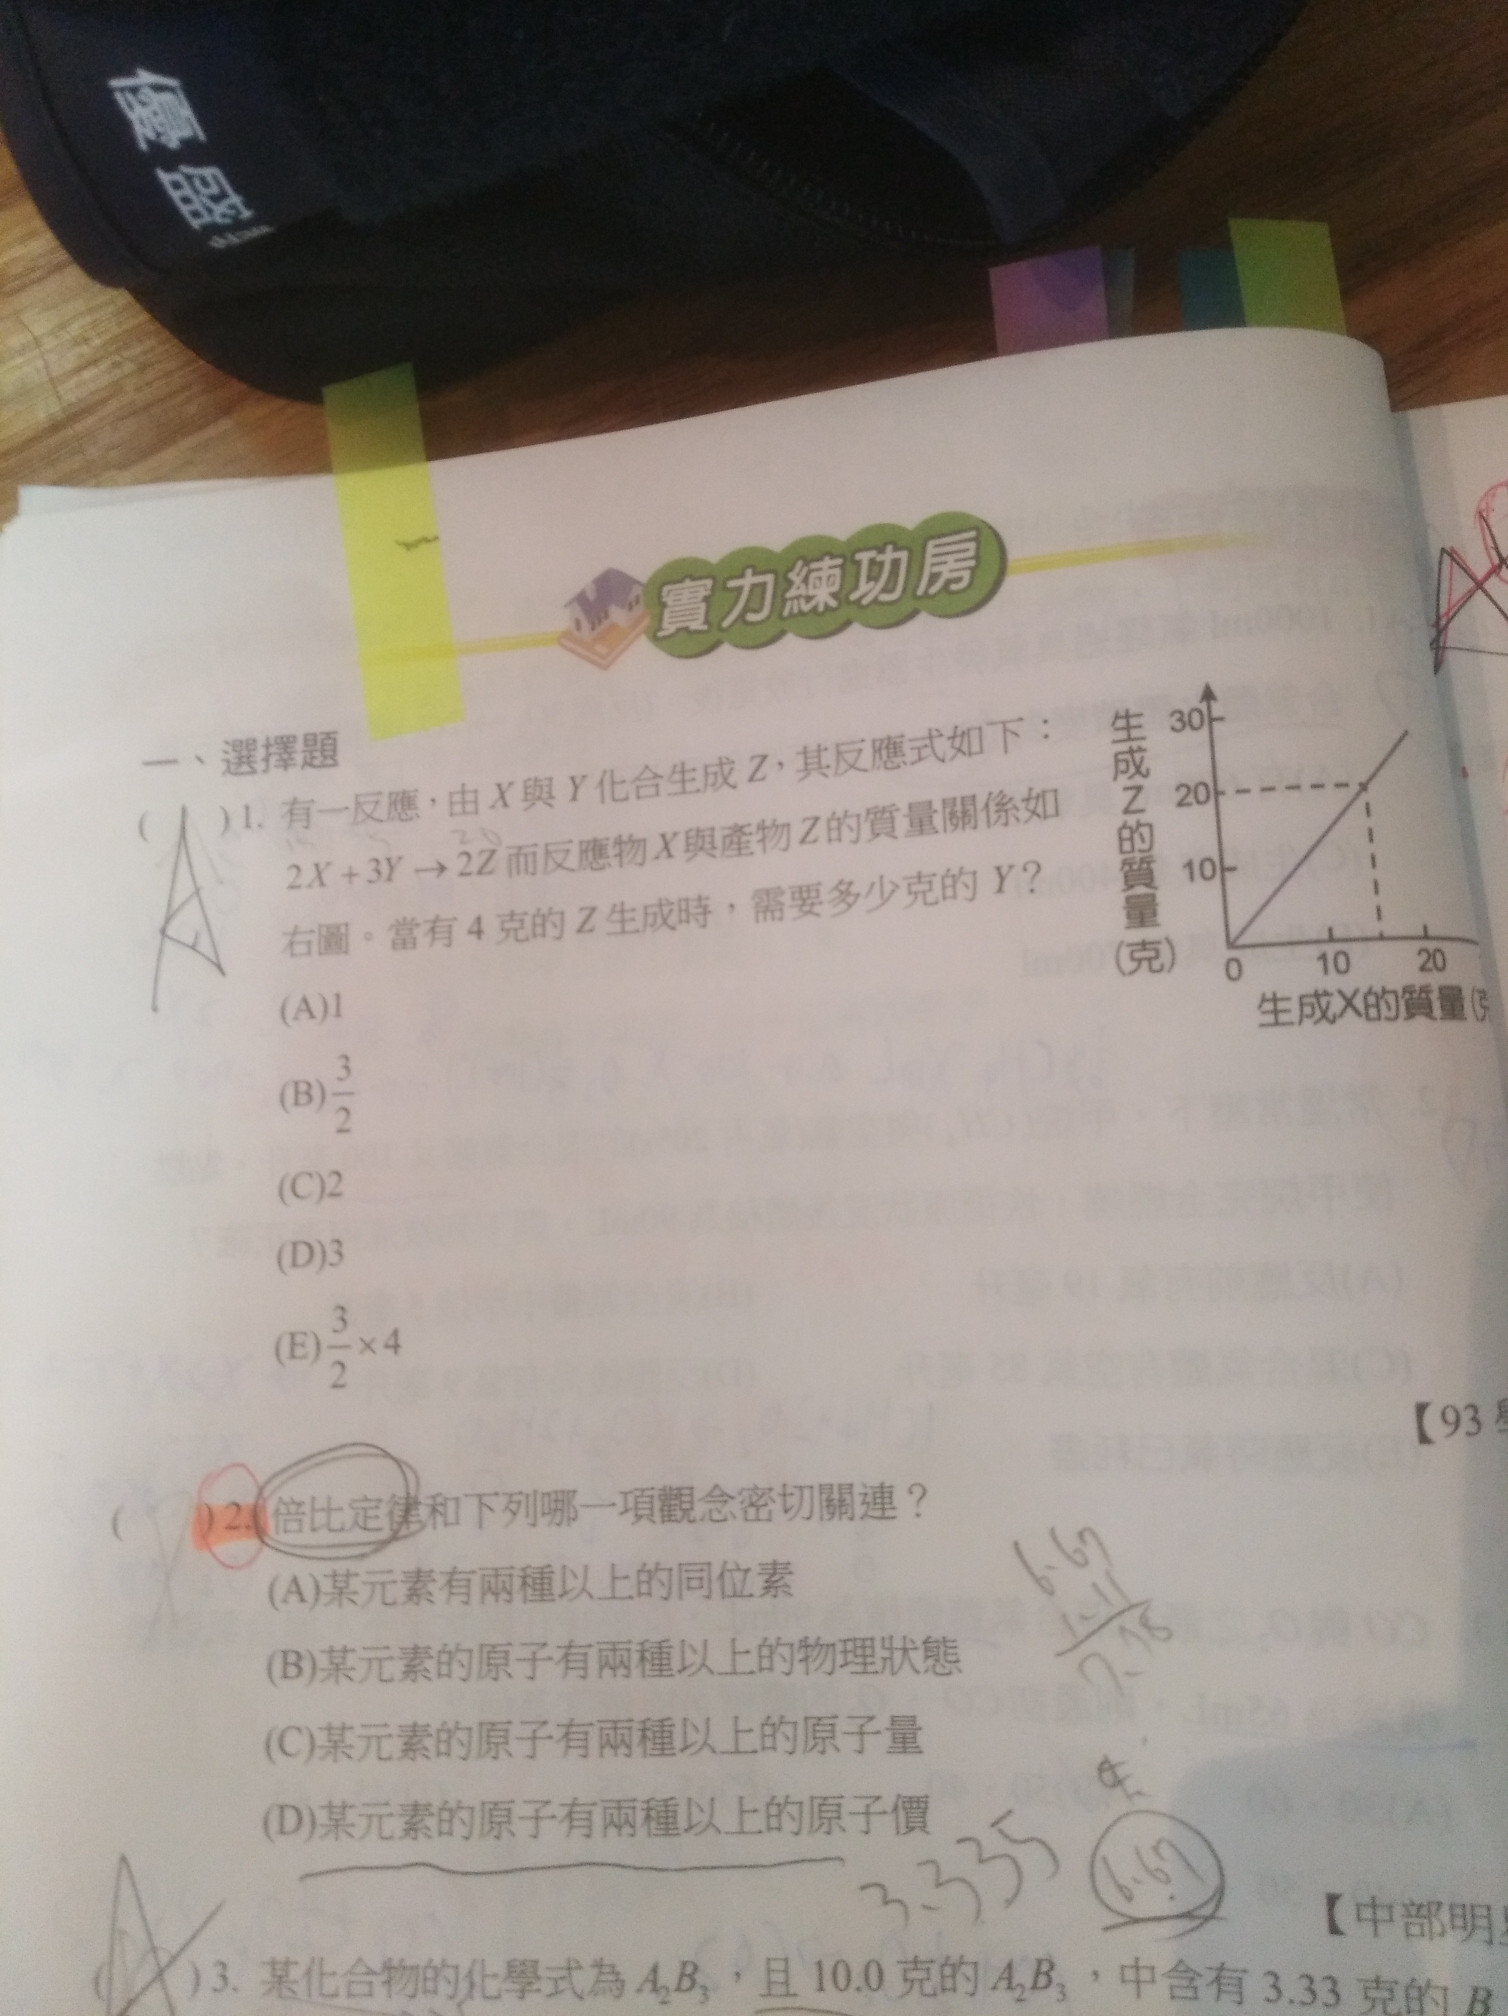 優盛
實力練功房
一、選擇題
( )1. 有一反應，由 X 與 Y 化合生成 Z，其反應式如下：
2X + 3Y → 2Z 而反應物 X 與產物 Z 的質量關係如
右圖。當有 4 克的 Z 生成時，需要多少克的 Y？
(A)1
(B) 3/2
(C)2
(D)3
(E) 3/2 × 4
生成Z的質量(克)
30
20
10
0 10 20
生成X的質量(
【93
( )2. 倍比定律和下列哪一項觀念密切關連？
(A)某元素有兩種以上的同位素
(B)某元素的原子有兩種以上的物理狀態
(C)某元素的原子有兩種以上的原子量
(D)某元素的原子有兩種以上的原子價
6.67
3.335
6.67
【中部明
( )3. 某化合物的化學式為 A₂B₃，且 10.0 克的 A₂B₃，中含有 3.33 克的 B